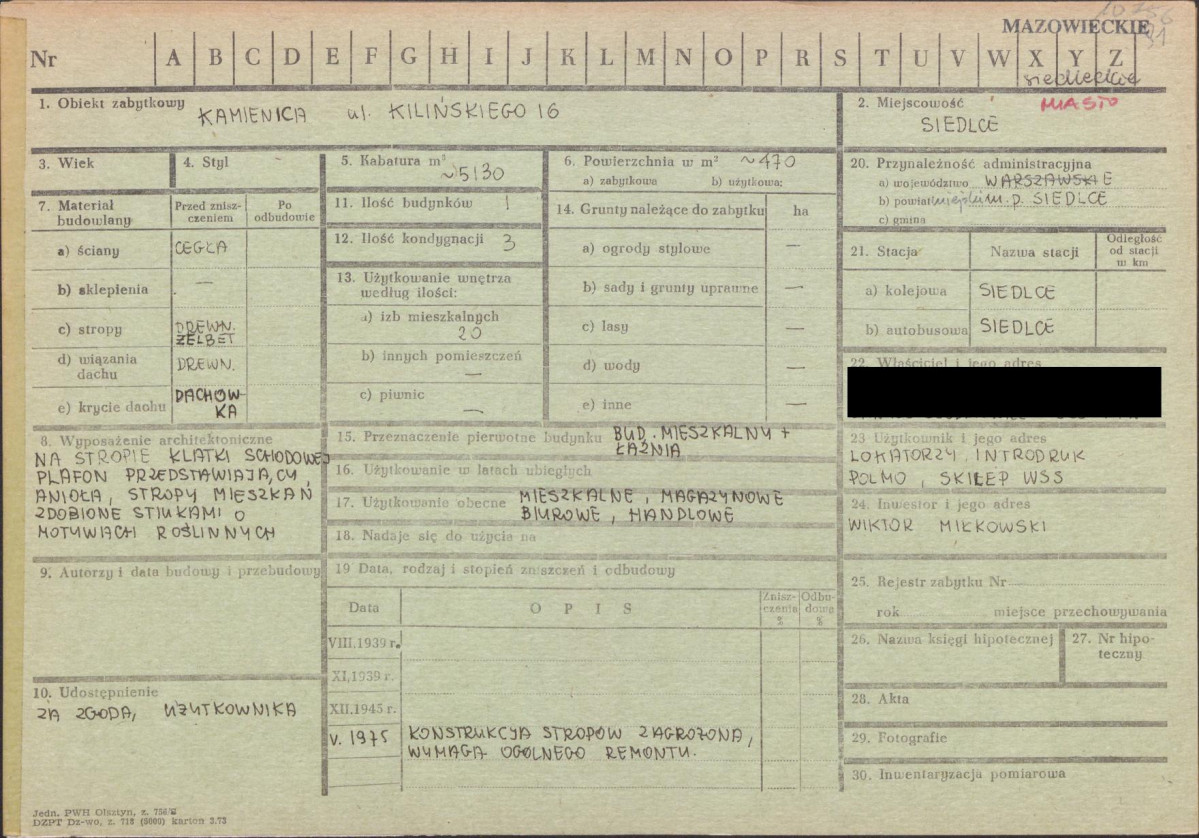 10 756
MAZOWIECKIE
Nr A B C D E F G H I J K L M N O P R S T U V W X Y Z
siedleckie
1. Obiekt zabytkowy
KAMIENICA ul. KILIŃSKIEGO 16
2. Miejscowość MIASTO
SIEDLCE
3. Wiek
4. Styl
5. Kabatura m³
~5130
6. Powierzchnia w m² ~470
a) zabytkowa b) użytkowa:
20. Przynależność administracyjna
a) województwo WARSZAWSKIE
b) powiat miejski m.p. SIEDLCE
c) gmina
7. Materiał budowlany
Przed znisz-
czeniem
Po
odbudowie
a) ściany CEGŁA
b) sklepienia —
c) stropy DREWN.
ŻELBET
d) wiązania
dachu DREWN.
e) krycie dachu DACHÓW-
KA
11. Ilość budynków 1
12. Ilość kondygnacji 3
13. Użytkowanie wnętrza
według ilości:
a) izb mieszkalnych
20
b) innych pomieszczeń
—
c) piwnic
—
14. Grunty należące do zabytku ha
a) ogrody stylowe —
b) sady i grunty uprawne —
c) lasy —
d) wody —
e) inne —
21. Stacja Nazwa stacji Odległość
od stacji
w km
a) kolejowa SIEDLCE
b) autobusowa SIEDLCE
22. Właściciel i jego adres
8. Wyposażenie architektoniczne
NA STROPIE KLATKI SCHODOWEJ
PLAFON PRZEDSTAWIAJĄCY
ANIOŁA, STROPY MIESZKAŃ
ZDOBIONE STIUKAMI O
MOTYWACH ROŚLINNYCH
15. Przeznaczenie pierwotne budynku BUD. MIESZKALNY +
ŁAŹNIA
16. Użytkowanie w latach ubiegłych
17. Użytkowanie obecne MIESZKALNE, MAGAZYNOWE
BIUROWE, HANDLOWE
18. Nadaje się do użycia na
23 Użytkownik i jego adres
LOKATORZY, INTRODRUK
POLMO, SKLEP WSS
24. Inwestor i jego adres
WIKTOR MIŁKOWSKI
9. Autorzy i data budowy i przebudowy
19 Data, rodzaj i stopień zniszczeń i odbudowy
Data OPIS Znisz-
czenia
% Odbu-
dowa
%
VIII.1939 r.
XI.1939 r.
XII.1945 r.
V. 1975 KONSTRUKCJA STROPÓW ZAGROŻONA,
WYMAGA OGÓLNEGO REMONTU.
25. Rejestr zabytku Nr
rok miejsce przechowywania
26. Nazwa księgi hipotecznej
27. Nr hipo-
teczny
28. Akta
29. Fotografie
30. Inwentaryzacja pomiarowa
10. Udostępnienie
ZA ZGODĄ UŻYTKOWNIKA
Jedn. PWH Olsztyn, z. 756/
DZPT Dz-wo, z. 713 (5000) karton 3.73